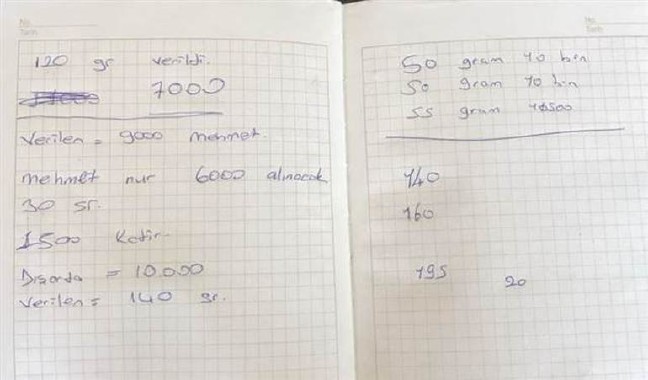 No.
Tarih
120 gr verildi.
7000
Verilen = 9000 mehmet.
mehmet nur 6000 alınacak
30 gr.
1500 Ketir
Dışarda = 10.000
Verilen = 140 gr.
No.
Tarih
50 gram 10 bin
50 gram 10 bin
55 gram 10500
140
160
195 20